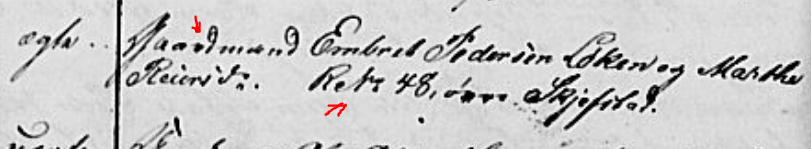 ægte .. Gaardmand Embret Pedersen Løken og Marthe
Reiersd. Ret: 48, øvre Skjefstad.